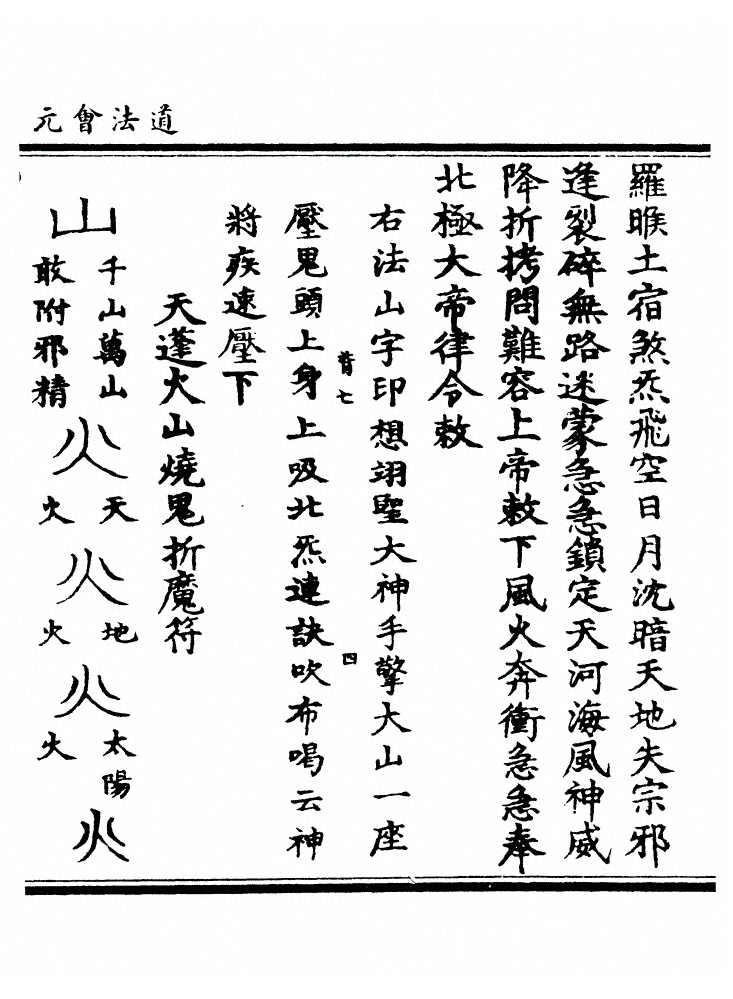 道法會元
羅睺土宿煞炁飛空日月沈暗天地失宗邪
逢裂碎無路迷蒙急急鎖定天河海風神威
降折拷問難容上帝敕下風火奔衝急急奉
北極大帝律令敕
右法山字印想翊聖大神手擎大山一座
七
四
壓鬼頭上身上吸北炁連訣吹布喝云神
將疾速壓下
天蓬火山燒鬼折魔符
山
千山萬山
敢附邪精
火
天
火
火
地
火
火
太陽
火
火